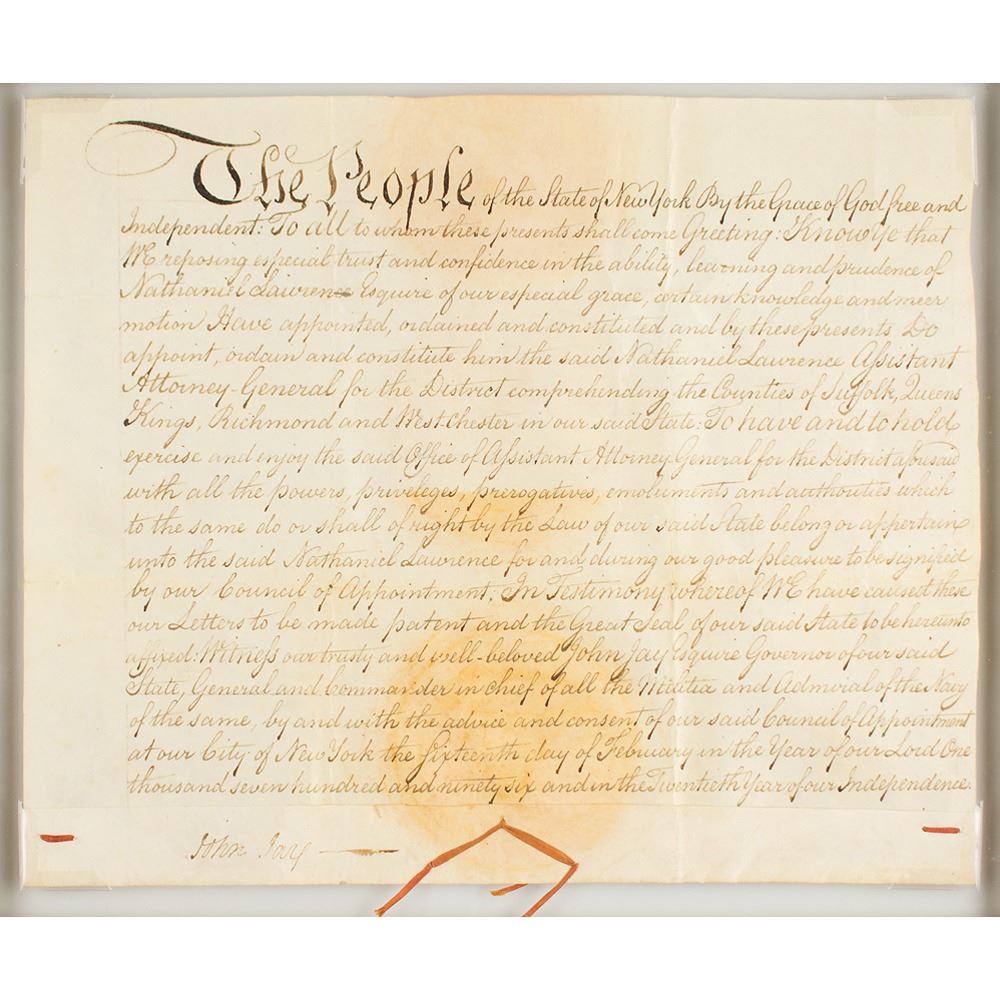 The People of the State of New York By the Grace of God free and
Independent: To all to whom these presents shall come Greeting: Know Ye that
We reposing especial trust and confidence in the ability, learning and prudence of
Nathaniel Lawrence Esquire of our especial grace, certain knowledge and meer
motion Have appointed, ordained and constituted and by these presents Do
appoint, ordain and constitute him the said Nathaniel Lawrence Assistant
Attorney-General for the District comprehending the Counties of Suffolk, Queens
Kings, Richmond and West-chester in our said State: To have and to hold
exercise and enjoy the said Office of Assistant Attorney General for the District aforesaid
with all the powers, priveleges, prerogatives, emoluments and authorities which
to the same do or shall of right by the Law of our said State belong or appertain
unto the said Nathaniel Lawrence for and during our good pleasure to be signified
by our Council of Appointment: In Testimony whereof We have caused these
our Letters to be made patent and the Great Seal of our said State to be hereunto
affixed: Witness our trusty and well-beloved John Jay Esquire Governor of our said
State, General and Commander in chief of all the Militia and Admiral of the Navy
of the same, by and with the advice and consent of our said Council of Appointment
at our City of New York the sixteenth day of February in the Year of our Lord One
thousand seven hundred and ninety six and in the Twentieth Year of our Independence.
John Jay